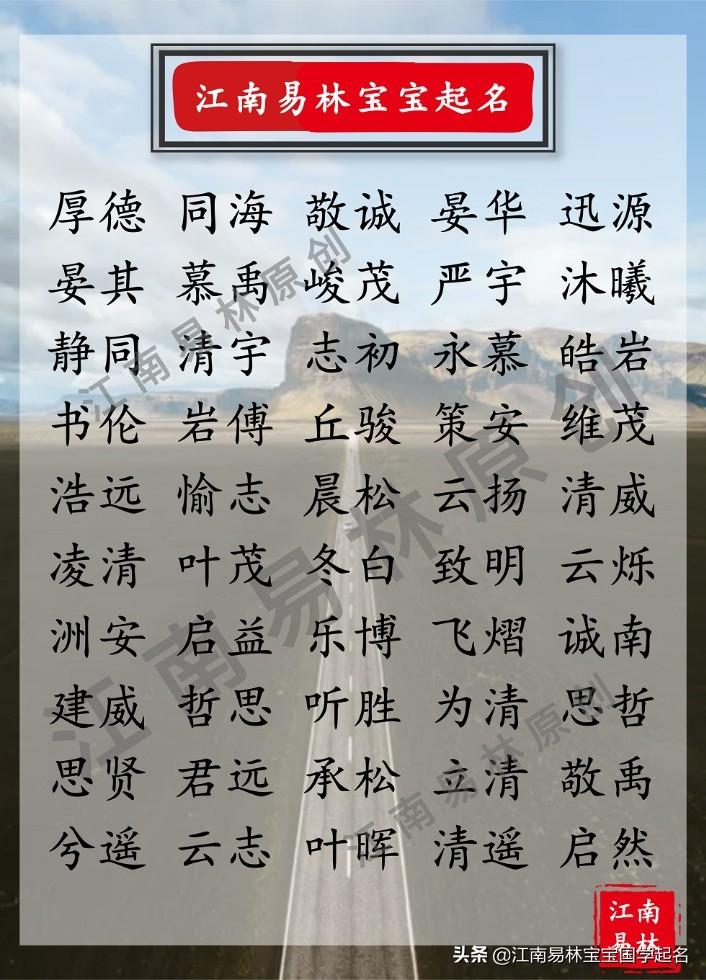 江南易林宝宝起名
厚德 同海 敬诚 晏华 迅源
晏其 慕禹 峻茂 严宇 沐曦
静同 清宇 志初 永慕 皓岩
书伦 岩傅 丘骏 策安 维茂
浩远 愉志 晨松 云扬 清威
凌清 叶茂 冬白 致明 云烁
洲安 启益 乐博 飞熠 诚南
建威 哲思 听胜 为清 思哲
思贤 君远 承松 立清 敬禹
兮遥 云志 叶晖 清遥 启然
江南易林原创
江南易林原创
江南易林原创
江南
易林
头条 @江南易林宝宝国学起名